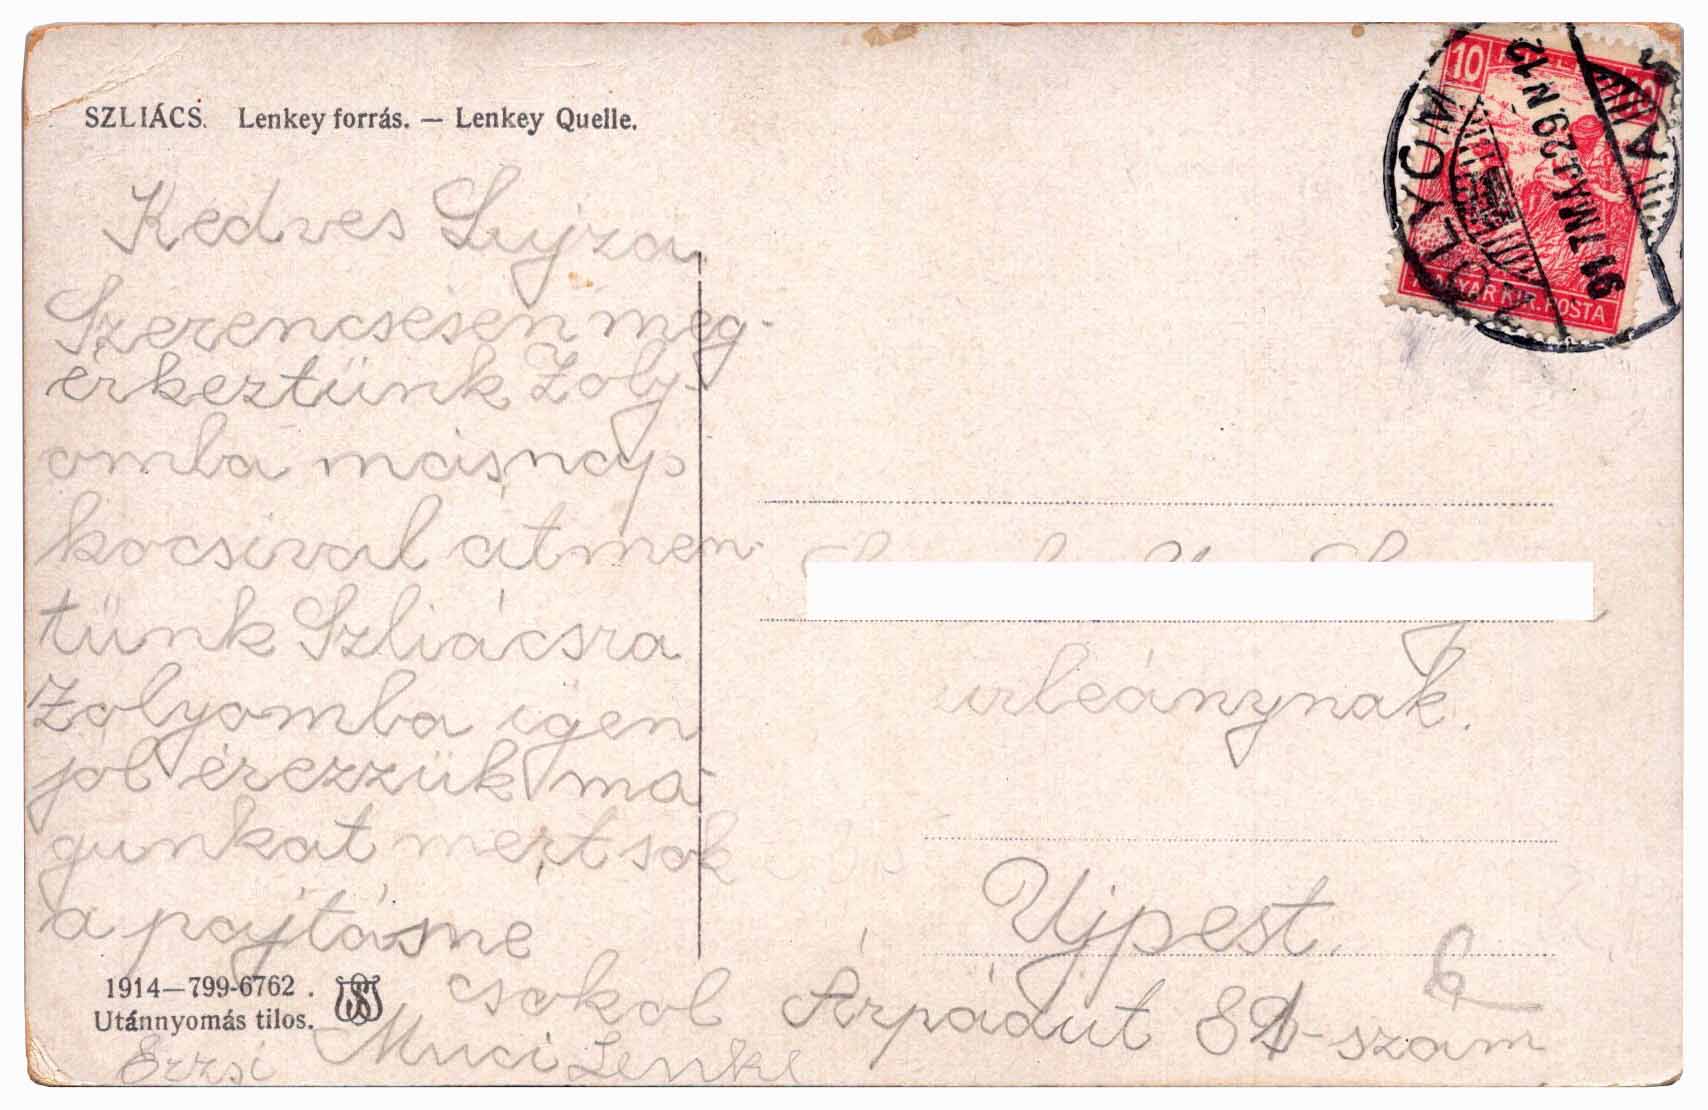 SZLIÁCS. Lenkey forrás. — Lenkey Quelle.
Kedves Lujza
Szerencsésen meg-
érkeztünk Zoly-
omba másnap
kocsival átmen-
tünk Szliácsra
Zolyomba igen
jol érezzük ma-
gunkat mert sok
a pajtásné
csokol
Muci Lenke
Erzsi
1914—799-6762.
Utánnyomás tilos.
10
MAGYAR KIR. POSTA
ZÓLYOM
917 MÁJ. 29 N 12
urleánynak.
Ujpest.
Árpád ut 81-szám
6